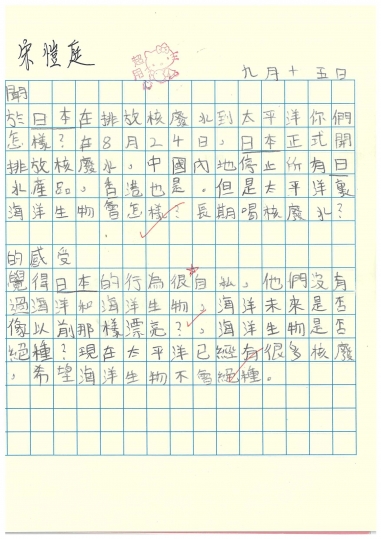 宋愷庭
九月十五日
聞
於日本在排放核廢水到太平洋你們
怎樣?在8月24日,日本正式開
排放核廢水,中國內地停止所有日
水產品,香港也是。但是太平洋裏
海洋生物會怎樣?長期喝核廢水?
的感受
覺得日本的行為很自私,他們沒有
過海洋和海洋生物,海洋未來是否
像以前那樣漂亮?,海洋生物是否
絕種?現在太平洋已經有很多核廢
,希望海洋生物不會絕種。